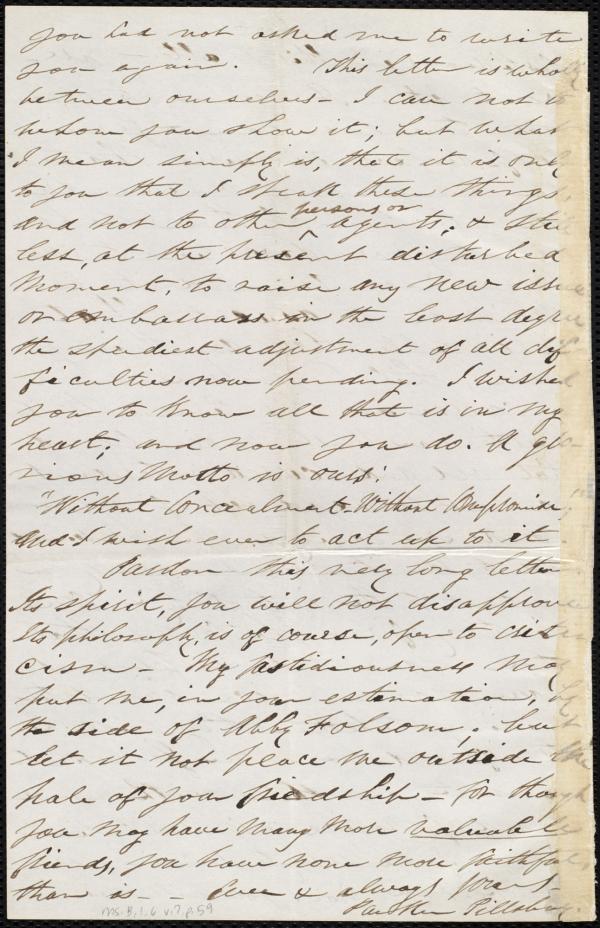 you had not asked me to write
you again. This letter is wholly
between ourselves - I care not to
whom you show it; but what
I mean simply is, that it is only
to you that I speak these things,
persons or
and not to other ^ agents, & still
less, at the present disturbed
moment, to raise any new issue
or embarrass in the least degree
the speediest adjustment of all dif
ficulties now pending. I wished
you to know all that is in my
heart; and now you do. A glo-
rious Motto is ours:
"Without Concealment - Without Compromise,"
and I wish ever to act up to it.
Pardon this very long letter.
Its spirit, you will not disapprove
Its philosophy, is of course, open to criti
cism - My fastidiousness may
put me, in your estimation, by
the side of Abby Folsom; but
let it not place me outside the
pale of your friendship - for though
you may have many more valuable
friends, you have none more faithful,
than is - Ever & always yours -
Parker Pillsbury.
Ms. B. 1. 6 v. 7, p. 59